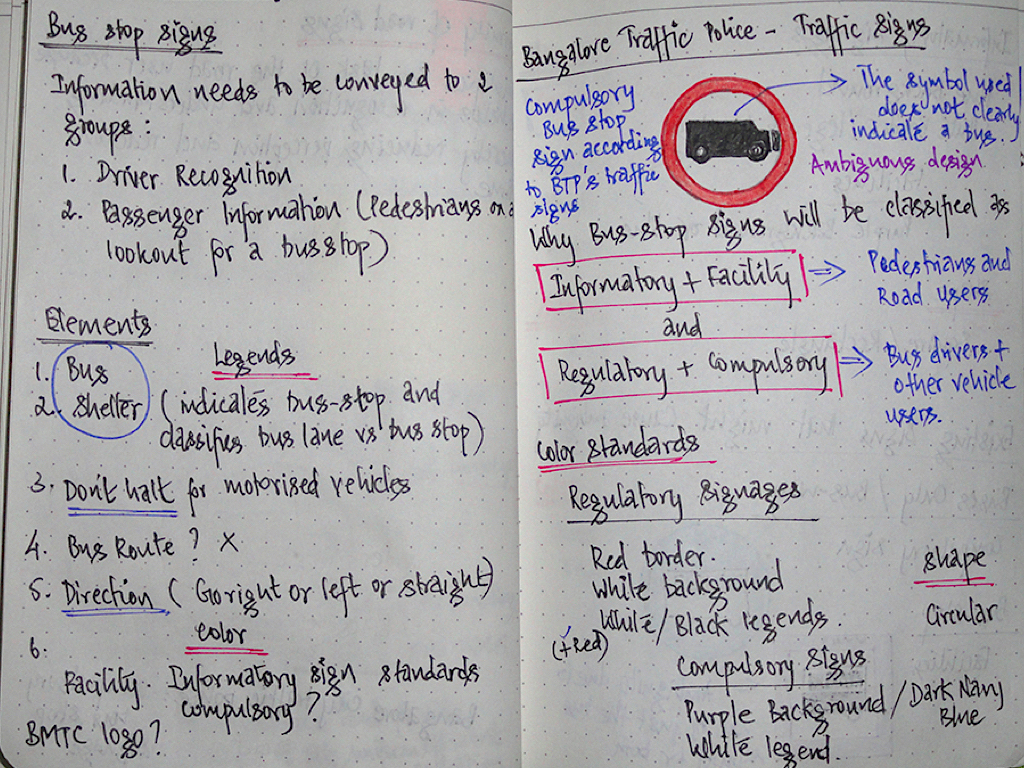 Bus stop signs
Information needs to be conveyed to 2
groups:
1. Driver Recognition
2. Passenger Information (Pedestrians on a
lookout for a bus stop)
Elements
Legends
1. Bus
2. Shelter (indicates bus-stop and
classifies bus lane vs bus stop)
3. Don't halt for motorised vehicles
4. Bus Route ? X
5. Direction (Go right or left or straight)
Color
6.
Facility Informatory sign standards
compulsory ?
BMTC logo ?
Bangalore Traffic Police - Traffic Signs
Compulsory
Bus stop
sign according
to BTP's traffic
signs
The symbol used
does not clearly
indicate a bus.
Ambiguous design
Why Bus-stop signs will be classified as
Informatory + Facility ⇒ Pedestrians and
Road users
and
Regulatory + Compulsory ⇒ Bus drivers +
other vehicle
users.
Color standards
Regulatory Signages
Red border.
White background
White/Black legends.
(+Red)
Shape
Circular
Compulsory signs
Purple Background / Dark Navy
Blue
White legend.